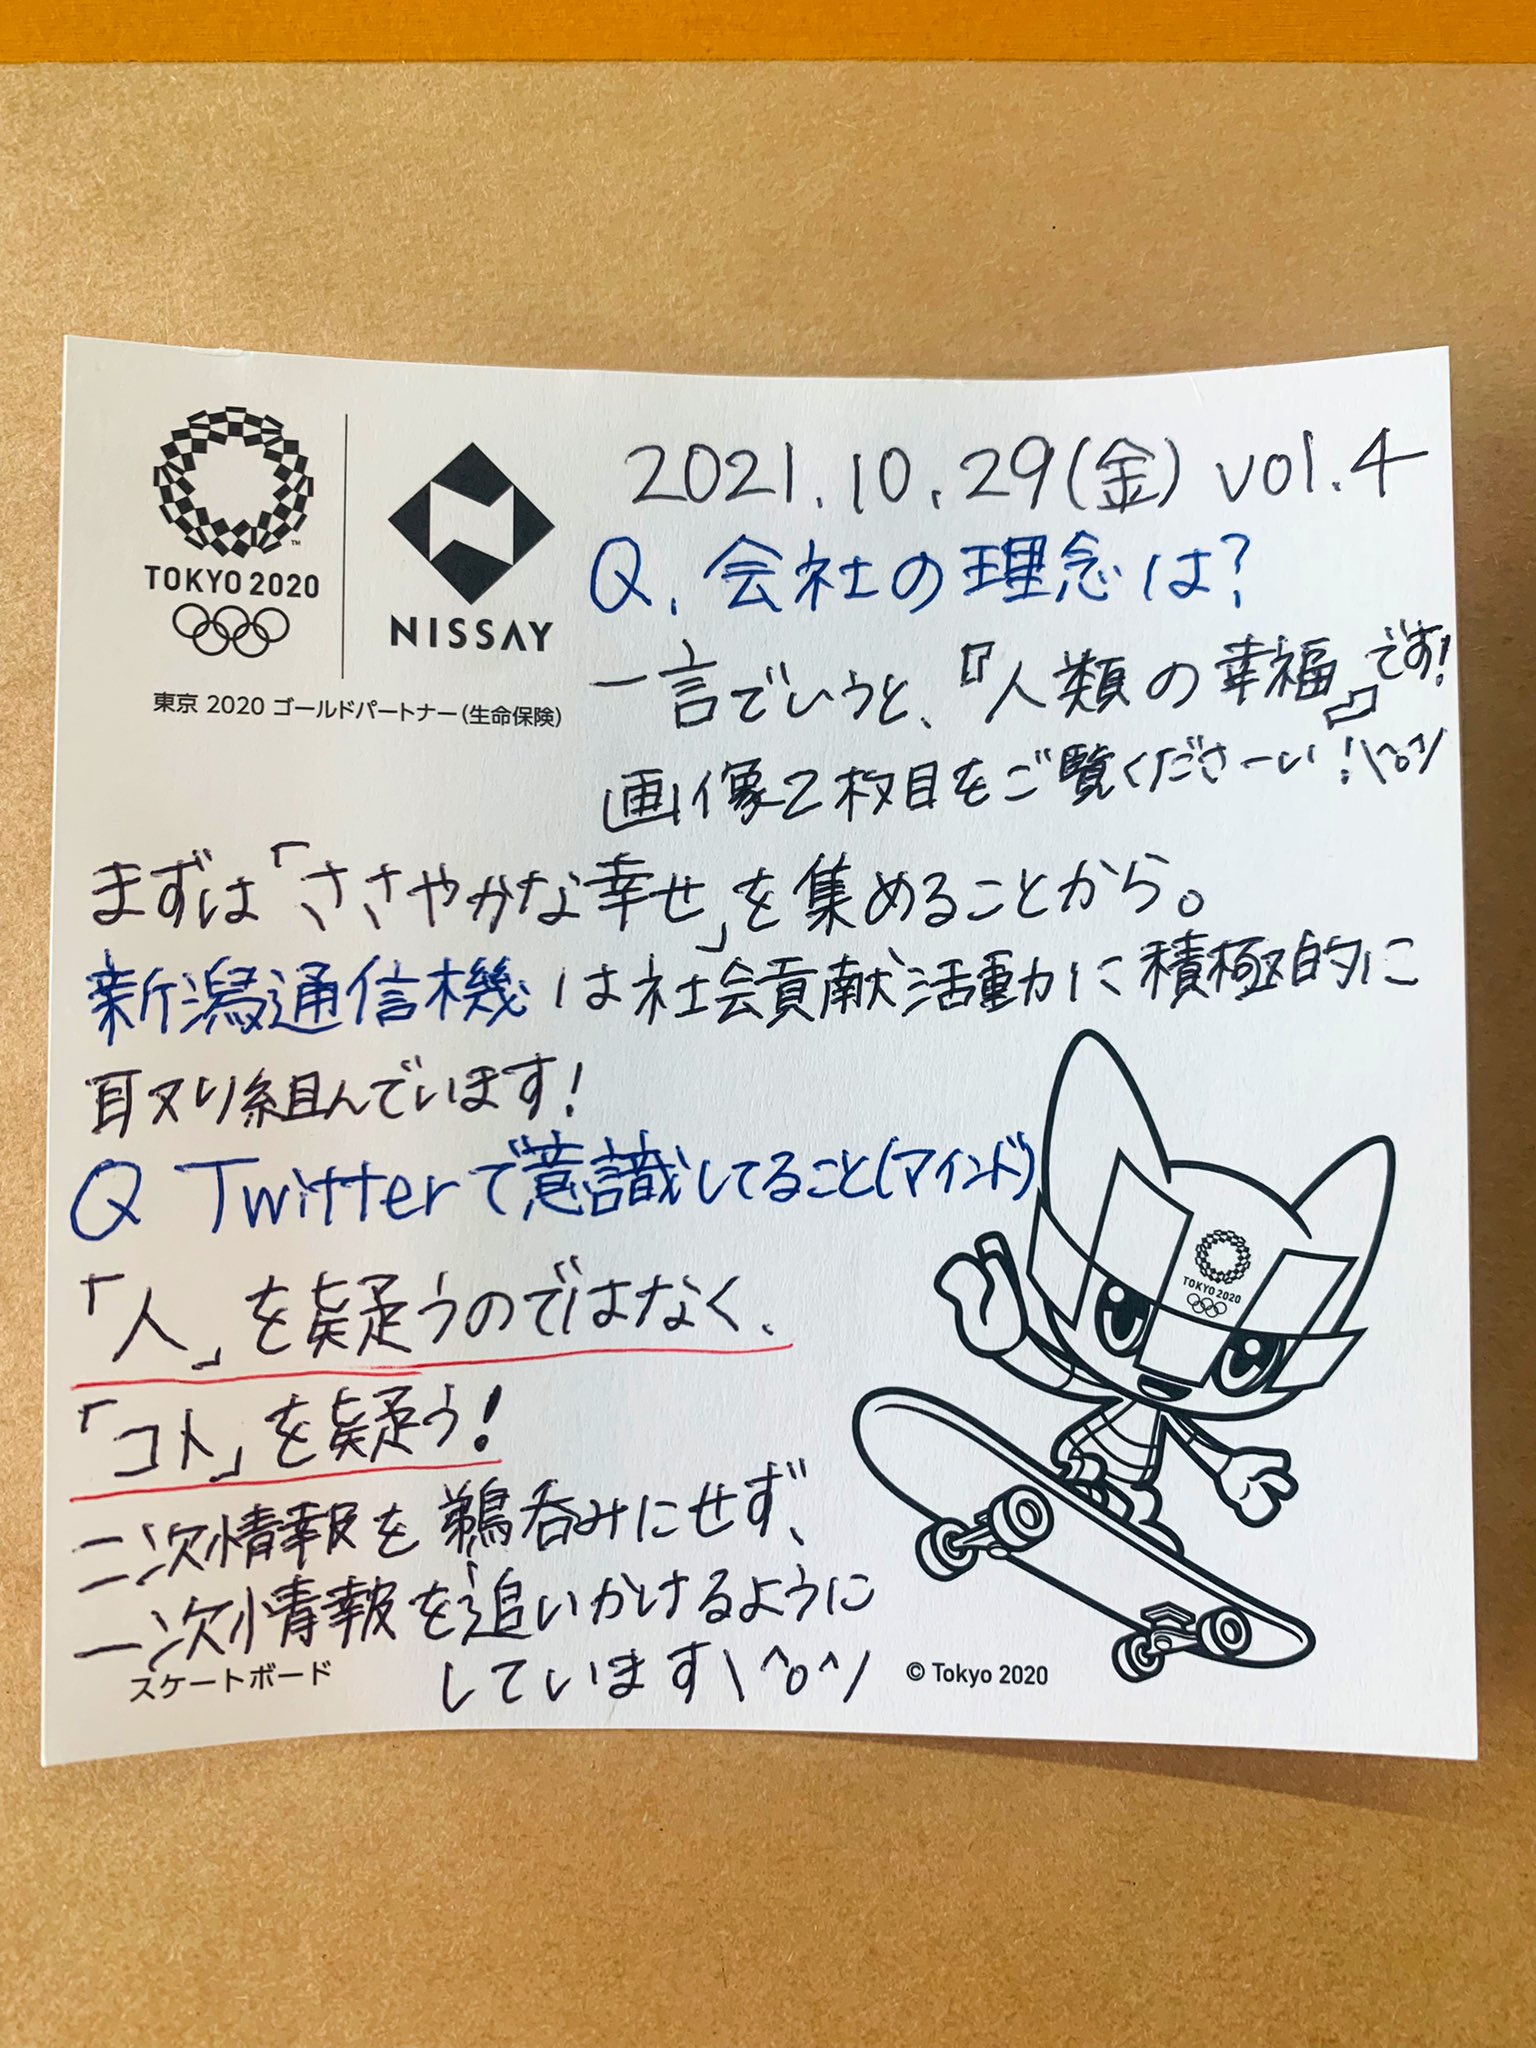 TOKYO 2020
NISSAY
東京 2020 ゴールドパートナー(生命保険)
2021.10.29(金) vol.4
Q. 会社の理念は?
一言でいうと、『人類の幸福』です!
画像2枚目をご覧くださーい!\^o^/
まずは「ささやかな幸せ」を集めることから。
新潟通信機は社会貢献活動に積極的に
取り組んでいます!
Q Twitterで意識してること(マインド)
「人」を疑うのではなく、
「コト」を疑う!
二次情報を鵜呑みにせず、
一次情報を追いかけるように
しています\^o^/
TOKYO 2020
スケートボード
© Tokyo 2020